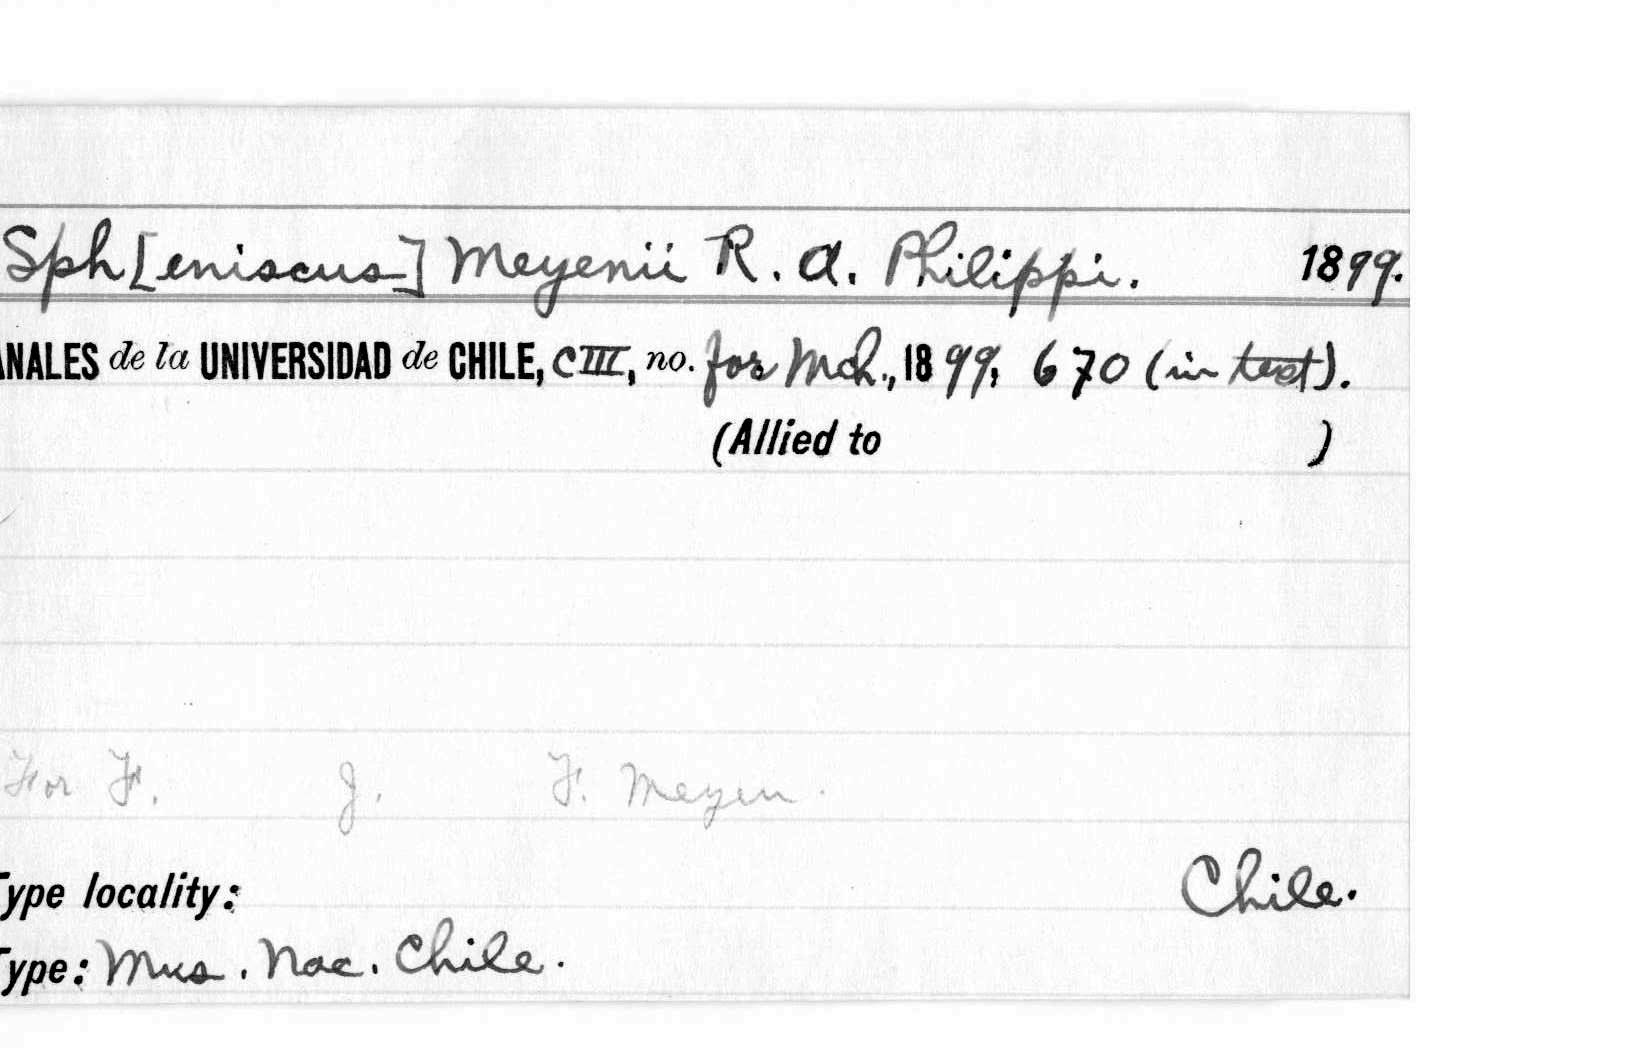 Sph[eniscus] Meyenii R. A. Philippi. 1899.
ANALES de la UNIVERSIDAD de CHILE, CIII, no. for Mch., 1899, 670 (in text).
(Allied to )
For F. J. F. Meyen.
Type locality: Chile.
Type: Mus. Nac. Chile.